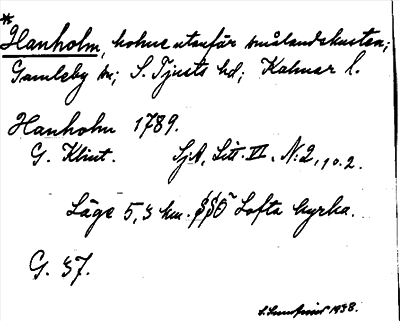 *
Hanholm, holme utanför smålandskusten;
Gamleby sn; S. Tjusts hd; Kalmar l.
Hanholm 1789.
G. Klint. SjA, Litt. VI. N:2, 10.2.
Läge 5,3 km. SSÖ Lofta kyrka.
G. 37.
1938.